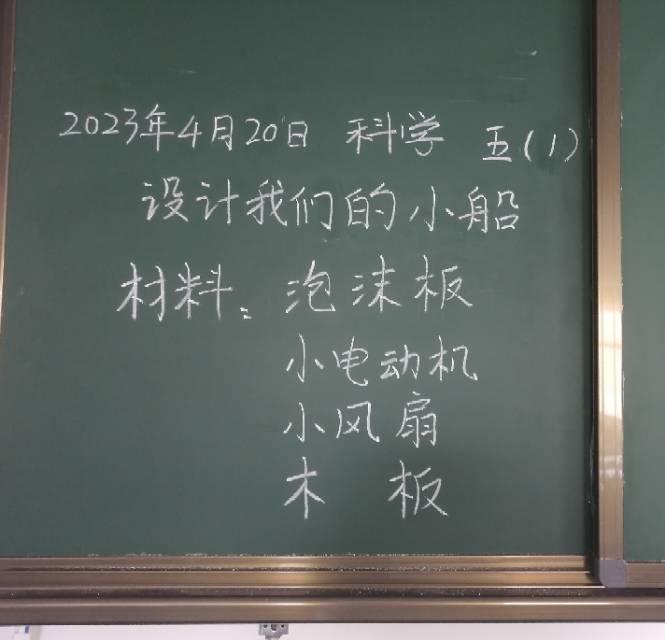 2023年4月20日 科学 五(1)
设计我们的小船
材料：泡沫板
小电动机
小风扇
木板